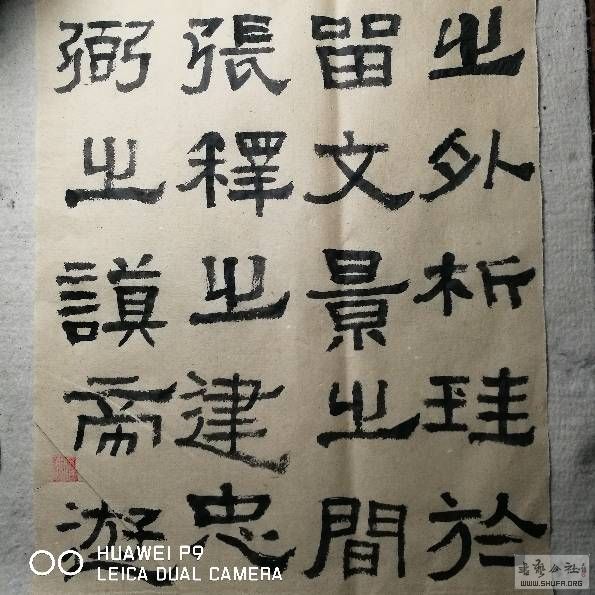 之外析珪於
留文景之間
張釋之建忠
弼之謨帝遊
HUAWEI P9
LEICA DUAL CAMERA
書藝公社
WWW.SHUFA.ORG